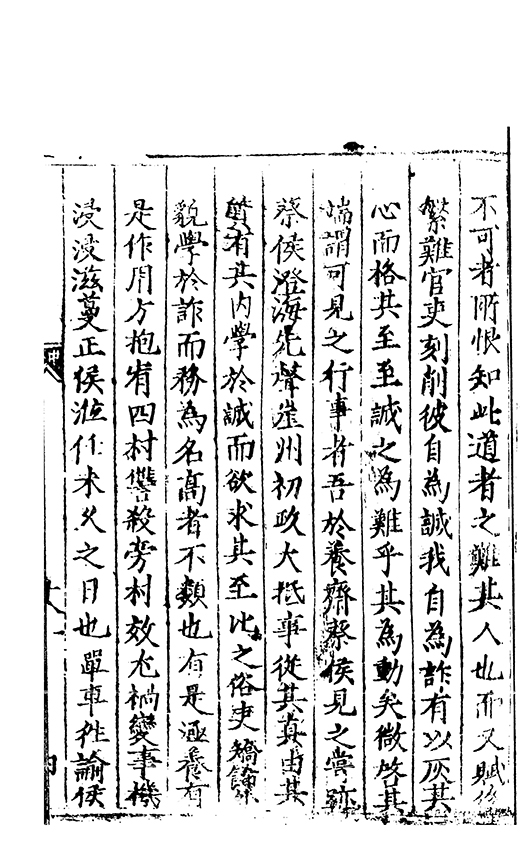 不可者所恨知此道者之難其人也而又賦役
繁難官吏刻削彼自為誠我自為詐有以灰其
心而格其至至誠之為難乎其為動矣微啓其
端謂可見之行事者吾於養齋蔡侯見之嘗跡
蔡侯澄海先聲崖州初政大抵事從其真由其
質有其內學於誠而欲求其至比之俗吏矯飾
貌學於詐而務為名高者不類也有是涵養有
是作用方抱宥四村讐殺旁村效尤禍變事機
浸浸滋蔓正侯涖任未久之日也單車往諭侯